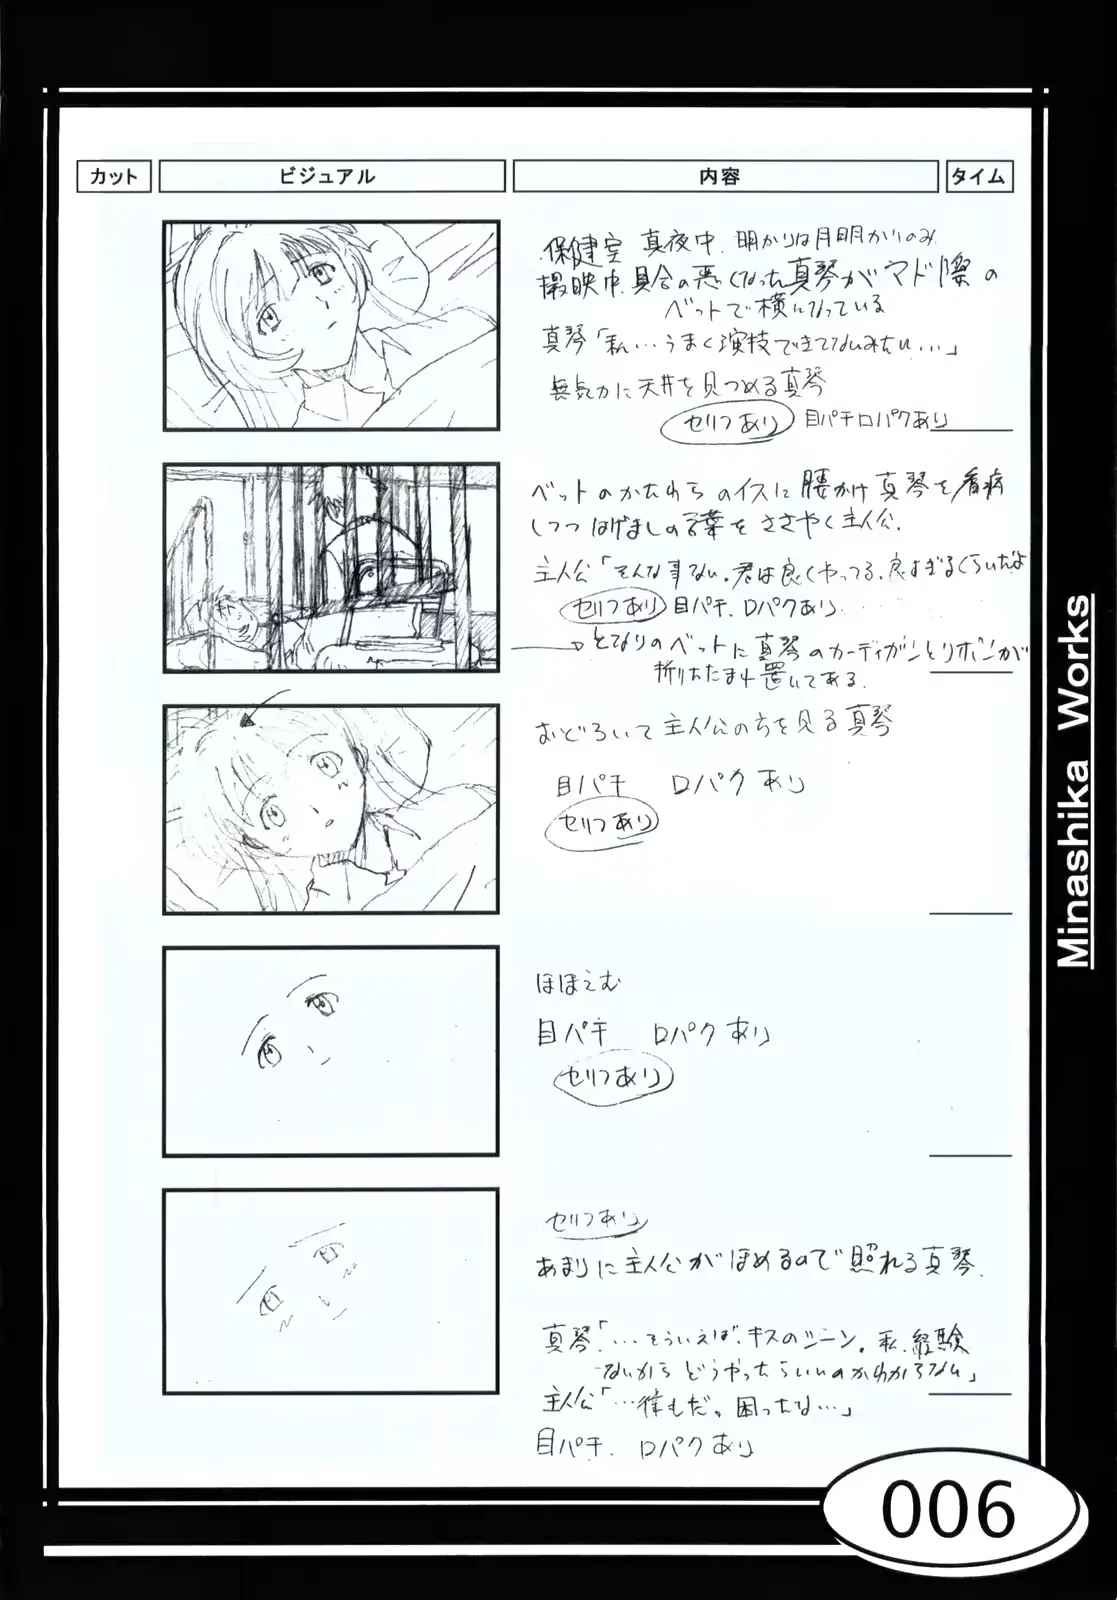 カット
ビジュアル
内容
タイム
保健室 真夜中、明かりは月明かりのみ
撮映中、具合の悪くなった真琴がマド際の
ベットで横になっている
真琴「私…うまく演技できてないみたい…」
無気力に天井を見つめる真琴
セリフあり 目パチ口パクあり
ベットのかたわらのイスに腰かけ真琴を看病
しつつはげましの言葉をささやく主人公.
主人公「そんな事ない。君は良くやってる、良すぎるくらいだよ
セリフあり 目パチ、口パクあり
となりのベットに真琴のカーディガンとリボンが
折りたたまれ置いてある.
おどろいて主人公の方を見る真琴
目パチ 口パクあり
セリフあり
ほほえむ
目パチ 口パクあり
セリフあり
セリフあり
あまりに主人公がほめるので照れる真琴.
真琴「…そういえば、キスのシーン。私、経験
ないからどうやったらいいのかわからない」
主人公「…僕もだ。困ったな…」
目パチ、口パクあり
Minashika Works
006